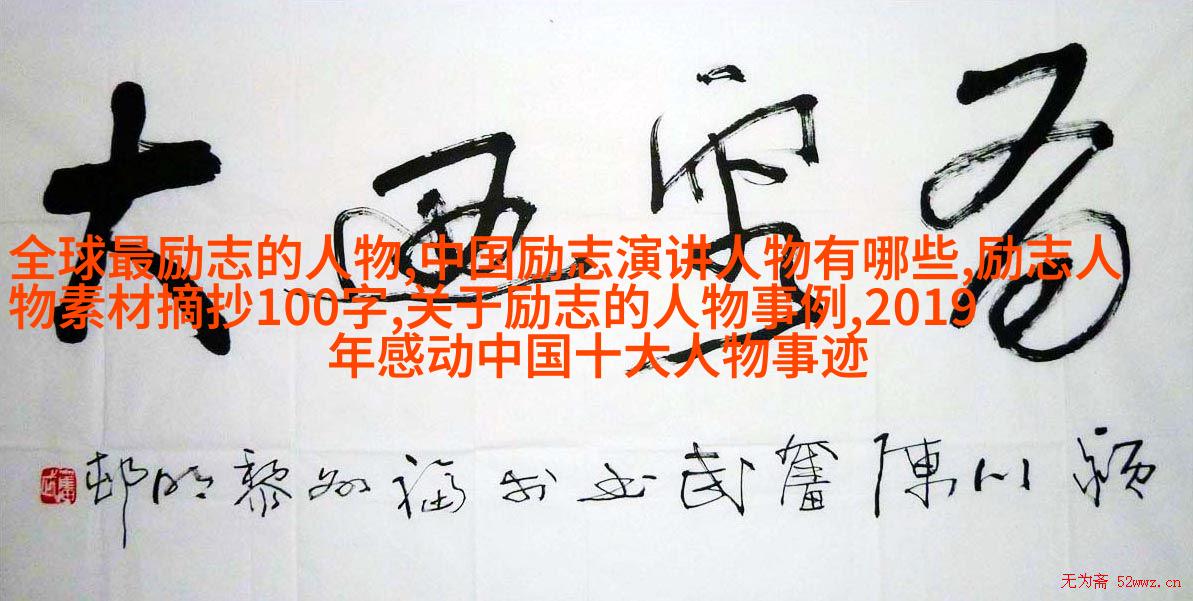 大
全球最励志的人物,中国励志演讲人物有哪些,励志人
物素材摘抄100字,关于励志的人物事例,2019
年感动中国十大人物事迹
颖川陳奮武书於福州黎明邨
无为斋 52wwz.cn